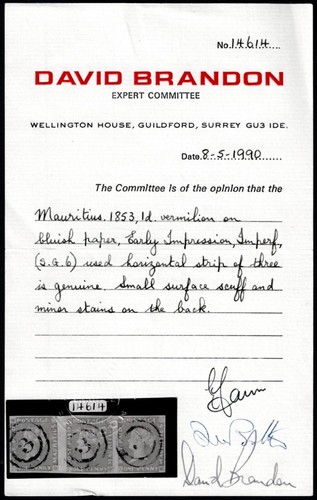 No. 14614
DAVID BRANDON
EXPERT COMMITTEE
WELLINGTON HOUSE, GUILDFORD, SURREY GU3 1DE.
Date 8-5-1990
The Committee is of the opinion that the
Mauritius. 1853, 1d. vermilion on
bluish paper, Early Impression, Imperf,
(S.G.6) used horizontal strip of three
is genuine. Small surface scuff and
minor stains on the back.
14614
David Brandon